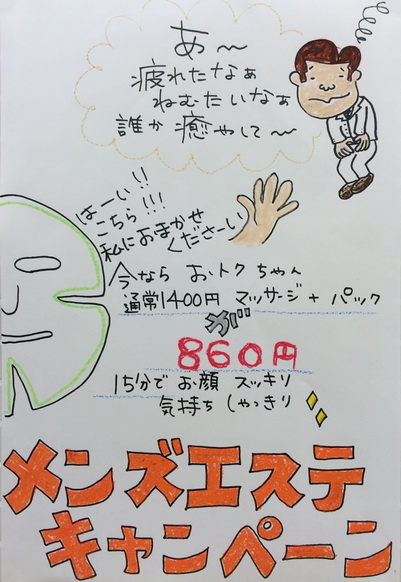 あ〜
疲れたなぁ
ねむたいなぁ
誰か癒やして〜
はーい!!
こちら!!!
私におまかせ
くださーい
今なら おトクちゃん
通常1400円 マッサージ+パック
が
860円
15分で お顔 スッキリ
気持ち しゃっきり
メンズエステ
キャンペーン